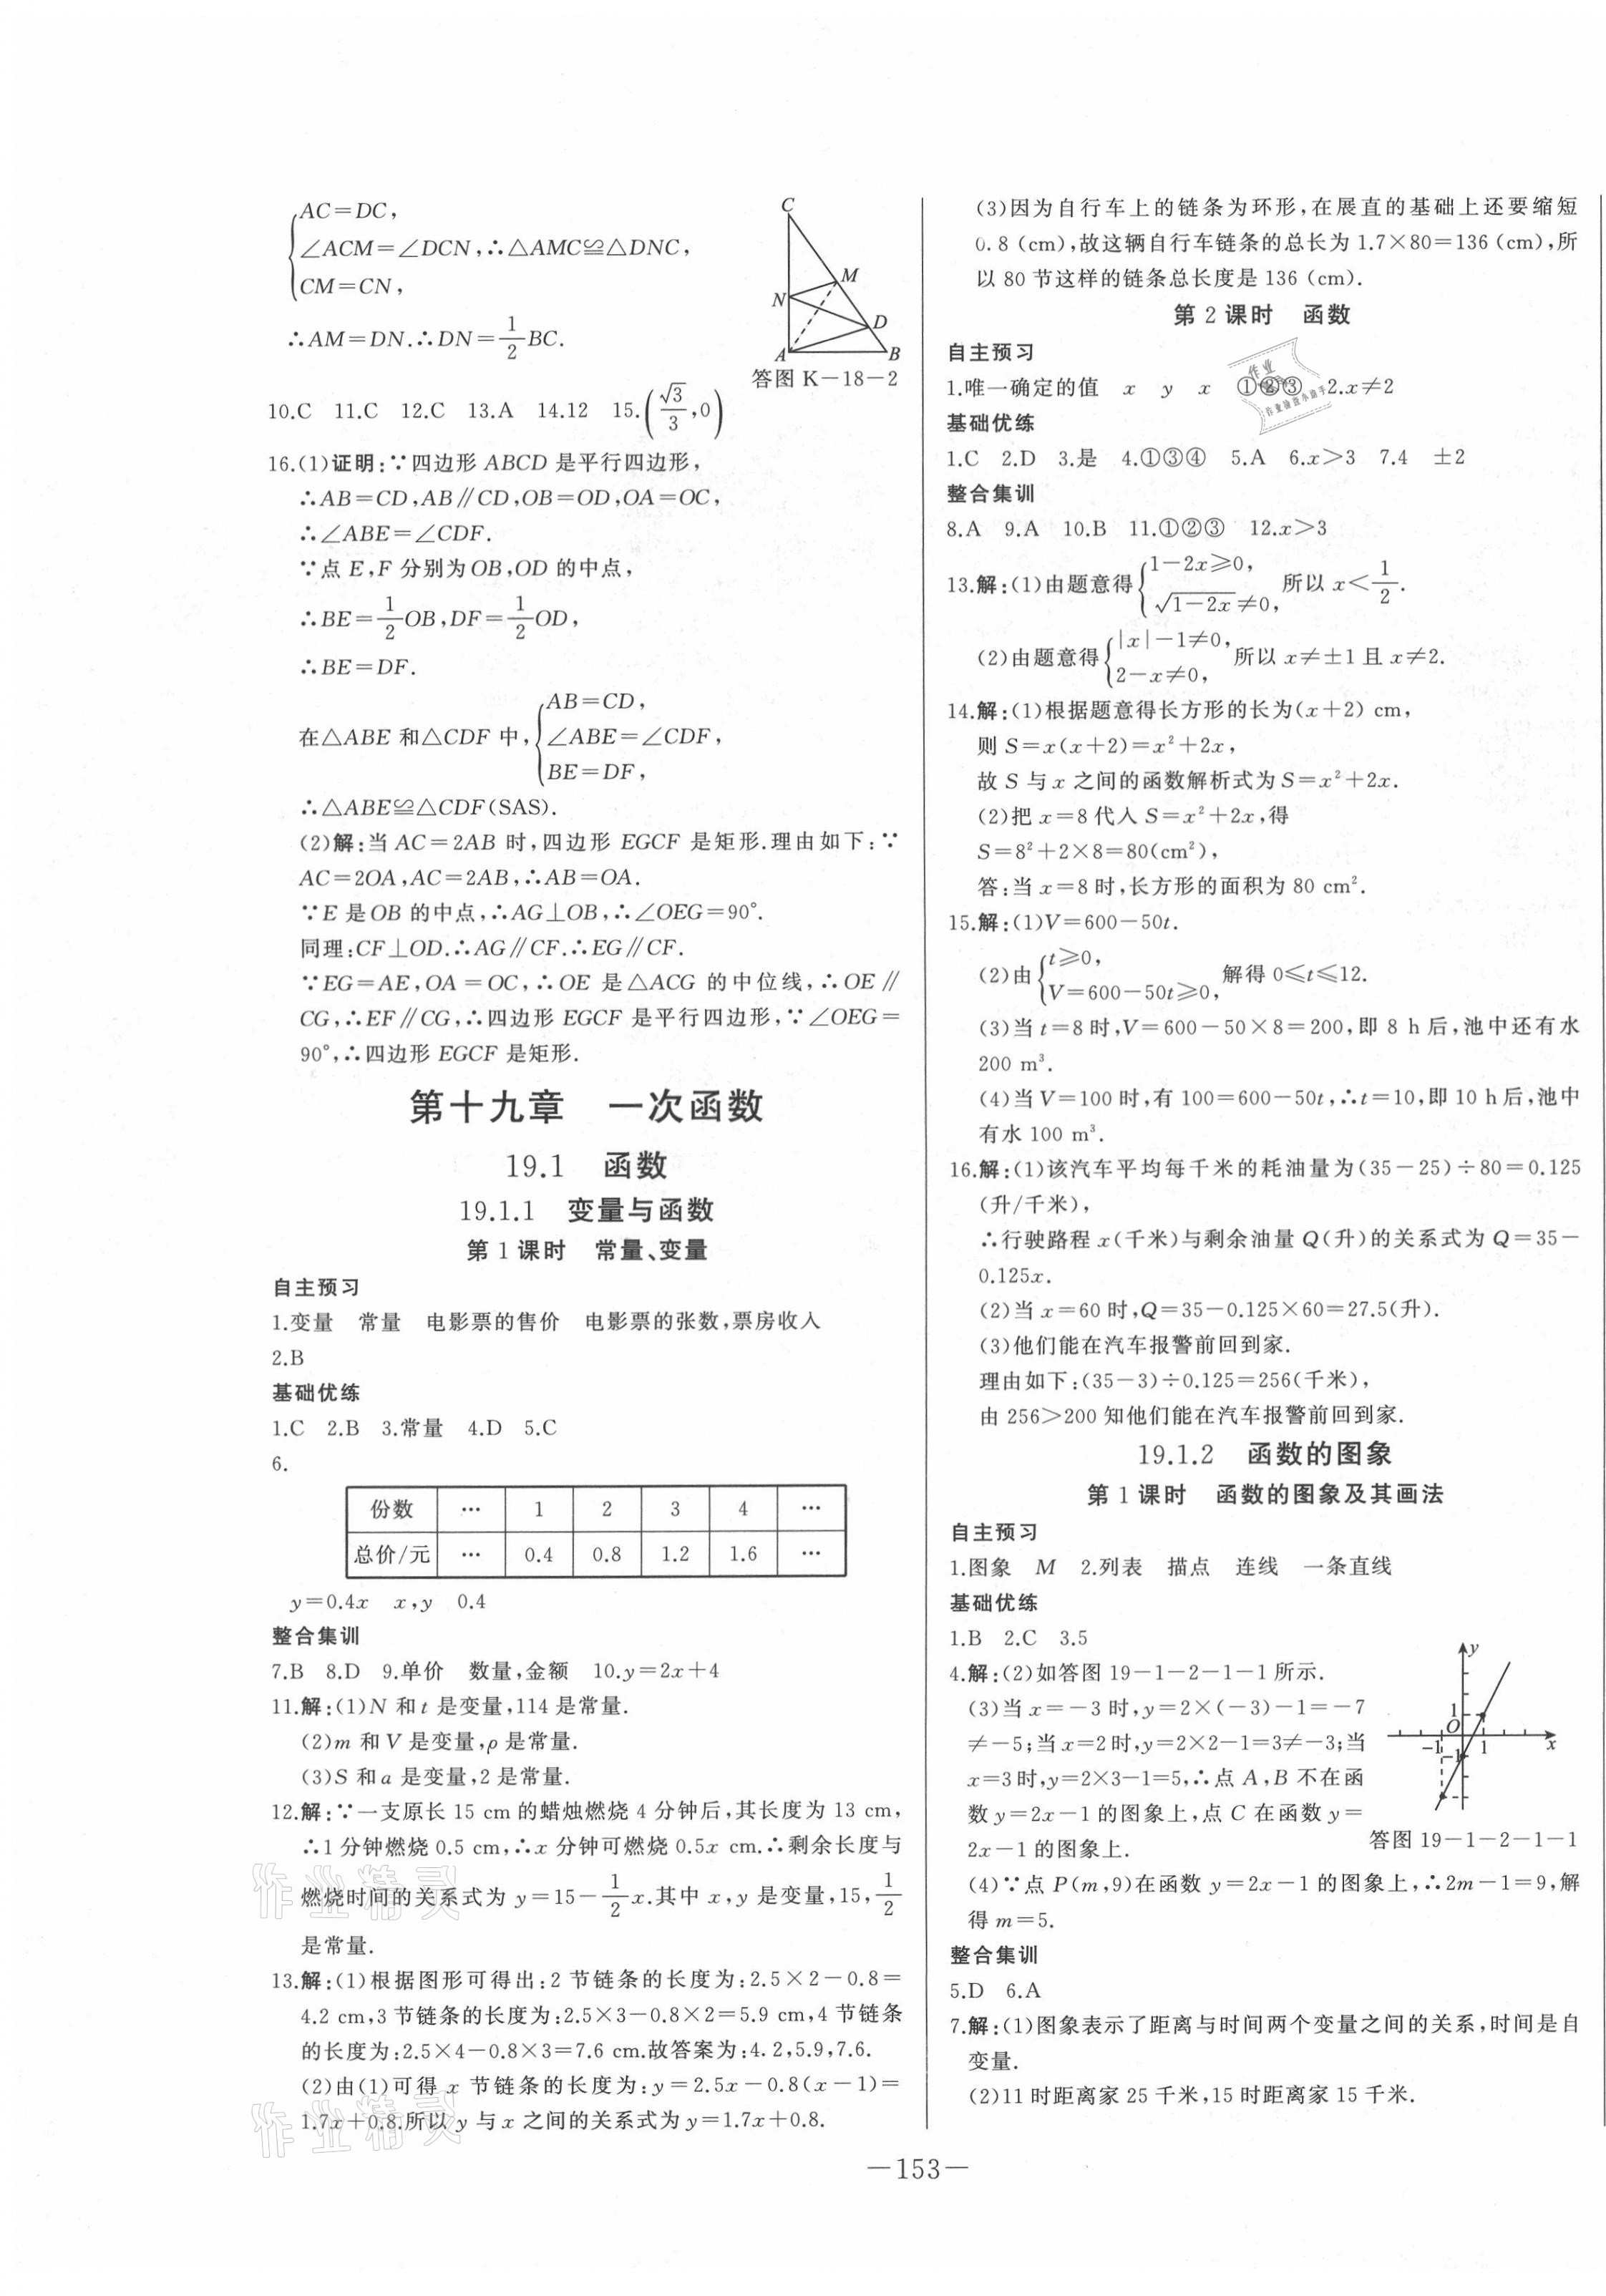 AC=DC,
∠ACM=∠DCN,∴△AMC≌△DNC,
CM=CN,
∴AM=DN.∴DN=1/2BC.
C
M
N
D
A
B
答图 K-18-2
10.C 11.C 12.C 13.A 14.12 15.(√3/3,0)
16.(1)证明:∵四边形 ABCD 是平行四边形,
∴AB=CD,AB∥CD,OB=OD,OA=OC,
∴∠ABE=∠CDF.
∵点 E,F 分别为 OB,OD 的中点,
∴BE=1/2OB,DF=1/2OD,
∴BE=DF.
在△ABE 和△CDF 中,{AB=CD,
∠ABE=∠CDF,
BE=DF,
∴△ABE≌△CDF(SAS).
(2)解:当 AC=2AB 时,四边形 EGCF 是矩形.理由如下:∵
AC=2OA,AC=2AB,∴AB=OA.
∵E 是 OB 的中点,∴AG⊥OB,∴∠OEG=90°.
同理:CF⊥OD.∴AG∥CF.∴EG∥CF.
∵EG=AE,OA=OC,∴OE 是△ACG 的中位线,∴OE∥
CG,∴EF∥CG,∴四边形 EGCF 是平行四边形,∵∠OEG=
90°,∴四边形 EGCF 是矩形.
第十九章 一次函数
19.1 函数
19.1.1 变量与函数
第 1 课时 常量、变量
自主预习
1.变量 常量 电影票的售价 电影票的张数,票房收入
2.B
基础优练
1.C 2.B 3.常量 4.D 5.C
6.
份数 … 1 2 3 4 …
总价/元 … 0.4 0.8 1.2 1.6 …
y=0.4x x,y 0.4
整合集训
7.B 8.D 9.单价 数量,金额 10.y=2x+4
11.解:(1)N 和 t 是变量,114 是常量.
(2)m 和 V 是变量,ρ 是常量.
(3)S 和 a 是变量,2 是常量.
12.解:∵一支原长 15 cm 的蜡烛燃烧 4 分钟后,其长度为 13 cm,
∴1 分钟燃烧 0.5 cm,∴x 分钟可燃烧 0.5x cm.∴剩余长度与
燃烧时间的关系式为 y=15-1/2x.其中 x,y 是变量,15,1/2
是常量.
13.解:(1)根据图形可得出:2 节链条的长度为:2.5×2-0.8=
4.2 cm,3 节链条的长度为:2.5×3-0.8×2=5.9 cm,4 节链条
的长度为:2.5×4-0.8×3=7.6 cm.故答案为:4.2,5.9,7.6.
(2)由(1)可得 x 节链条的长度为:y=2.5x-0.8(x-1)=
1.7x+0.8.所以 y 与 x 之间的关系式为 y=1.7x+0.8.
(3)因为自行车上的链条为环形,在展直的基础上还要缩短
0.8 (cm),故这辆自行车链条的总长为 1.7×80=136 (cm),所
以 80 节这样的链条总长度是 136 (cm).
第 2 课时 函数
自主预习
1.唯一确定的值 x y x ①②③ 2.x≠2
基础优练
1.C 2.D 3.是 4.①③④ 5.A 6.x>3 7.4 ±2
整合集训
8.A 9.A 10.B 11.①②③ 12.x>3
13.解:(1)由题意得{1-2x≥0,
√1-2x≠0, 所以 x<1/2.
(2)由题意得{|x|-1≠0,
2-x≠0, 所以 x≠±1 且 x≠2.
14.解:(1)根据题意得长方形的长为(x+2) cm,
则 S=x(x+2)=x²+2x,
故 S 与 x 之间的函数解析式为 S=x²+2x.
(2)把 x=8 代入 S=x²+2x,得
S=8²+2×8=80(cm²),
答:当 x=8 时,长方形的面积为 80 cm².
15.解:(1)V=600-50t.
(2)由{t≥0,
V=600-50t≥0, 解得 0≤t≤12.
(3)当 t=8 时,V=600-50×8=200,即 8 h 后,池中还有水
200 m³.
(4)当 V=100 时,有 100=600-50t,∴t=10,即 10 h 后,池中
有水 100 m³.
16.解:(1)该汽车平均每千米的耗油量为(35-25)÷80=0.125
(升/千米),
∴行驶路程 x(千米)与剩余油量 Q(升)的关系式为 Q=35-
0.125x.
(2)当 x=60 时,Q=35-0.125×60=27.5(升).
(3)他们能在汽车报警前回到家.
理由如下:(35-3)÷0.125=256(千米),
由 256>200 知他们能在汽车报警前回到家.
19.1.2 函数的图象
第 1 课时 函数的图象及其画法
自主预习
1.图象 M 2.列表 描点 连线 一条直线
基础优练
1.B 2.C 3.5
4.解:(2)如答图 19-1-2-1-1 所示.
(3)当 x=-3 时,y=2×(-3)-1=-7
≠-5;当 x=2 时,y=2×2-1=3≠-3;当
x=3 时,y=2×3-1=5,∴点 A,B 不在函
数 y=2x-1 的图象上,点 C 在函数 y=
2x-1 的图象上.
y
1
O
-1
-1
1
x
答图 19-1-2-1-1
(4)∵点 P(m,9)在函数 y=2x-1 的图象上,∴2m-1=9,解
得 m=5.
整合集训
5.D 6.A
7.解:(1)图象表示了距离与时间两个变量之间的关系,时间是自
变量.
(2)11 时距离家 25 千米,15 时距离家 15 千米.
—153—
作业精灵
作业精灵
作业